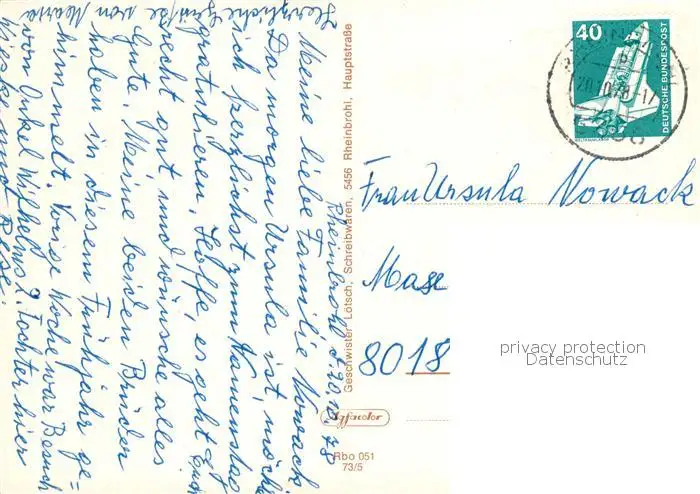 Rheinbrohl, d. 20.10.78
Meine liebe Familie Nowack!
Da morgen Ursula ist, möchte
ich herzlichst zum Namenstag
gratulieren. Hoffe, es geht Euch
recht gut und wünsche alles
Gute. Meine beiden Brüder
haben in diesem Frühjahr ge=
himmelt. Vorige Woche war Besuch
von Onkel Wilhelms 2. Tochter hier
Herzliche Grüße von
Geschwister Lötsch, Schreibwaren, 5456 Rheinbrohl, Hauptstraße
Agfacolor
Rbo 051
73/5
40
DEUTSCHE BUNDESPOST
20.10.78-17
Frau Ursula Nowack
8018
privacy protection
Datenschutz